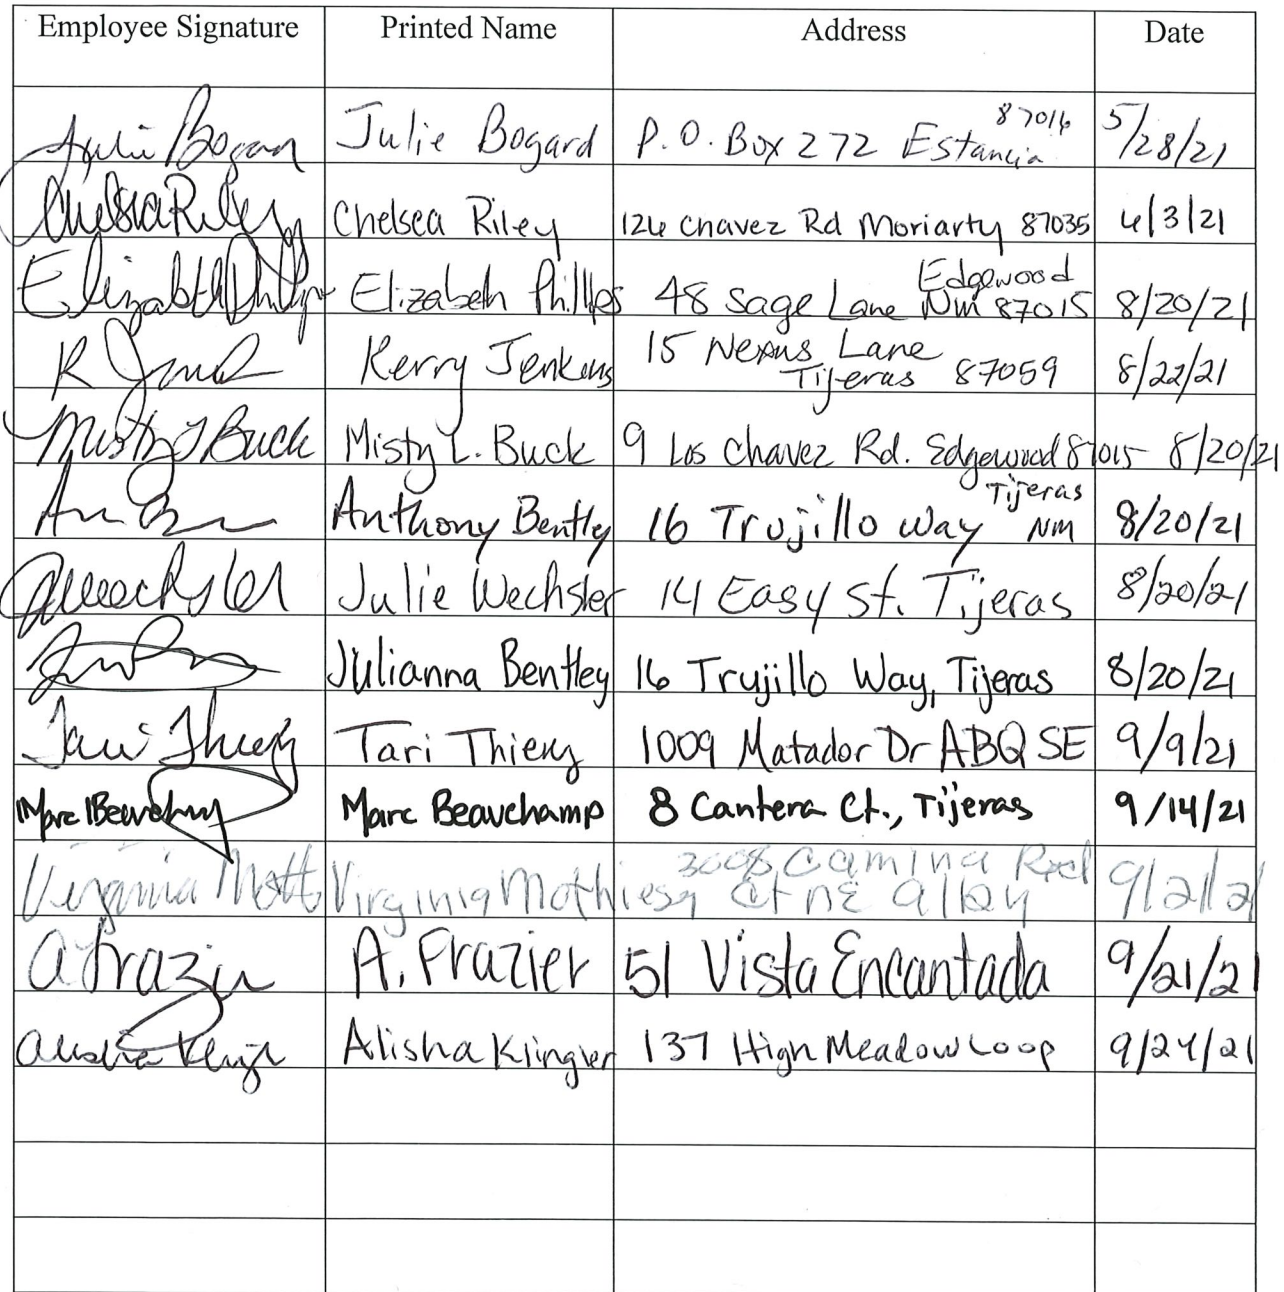 Employee Signature Printed Name Address Date
Julie Bogard Julie Bogard P.O. Box 272 Estancia 87016 5/28/21
Chelsea Riley Chelsea Riley 126 Chavez Rd Moriarty 87035 6/3/21
Elizabeth Phillips Elizabeth Phillips 48 Sage Lane Edgewood Nm 87015 8/20/21
Kerry Jenkins 15 Nexus Lane Tijeras 87059 8/22/21
Misty L Buck Misty L. Buck 9 Los Chavez Rd. Edgewood 87015 8/20/21
Anthony Bentley 16 Trujillo Way Tijeras NM 8/20/21
Julie Wechsler 14 Easy St. Tijeras 8/20/21
Julianna Bentley 16 Trujillo Way, Tijeras 8/20/21
Tari Tari Thieny 1009 Matador Dr ABQ SE 9/9/21
Marc Beauchamp Marc Beauchamp 8 Cantera Ct., Tijeras 9/14/21
Virginia Virginia Mothiesq 3008 Camina Ct ne 9/21/21
A Frazier A. Frazier 51 Vista Encantada 9/21/21
Alisha Klingler 137 High Meadow Loop 9/24/21